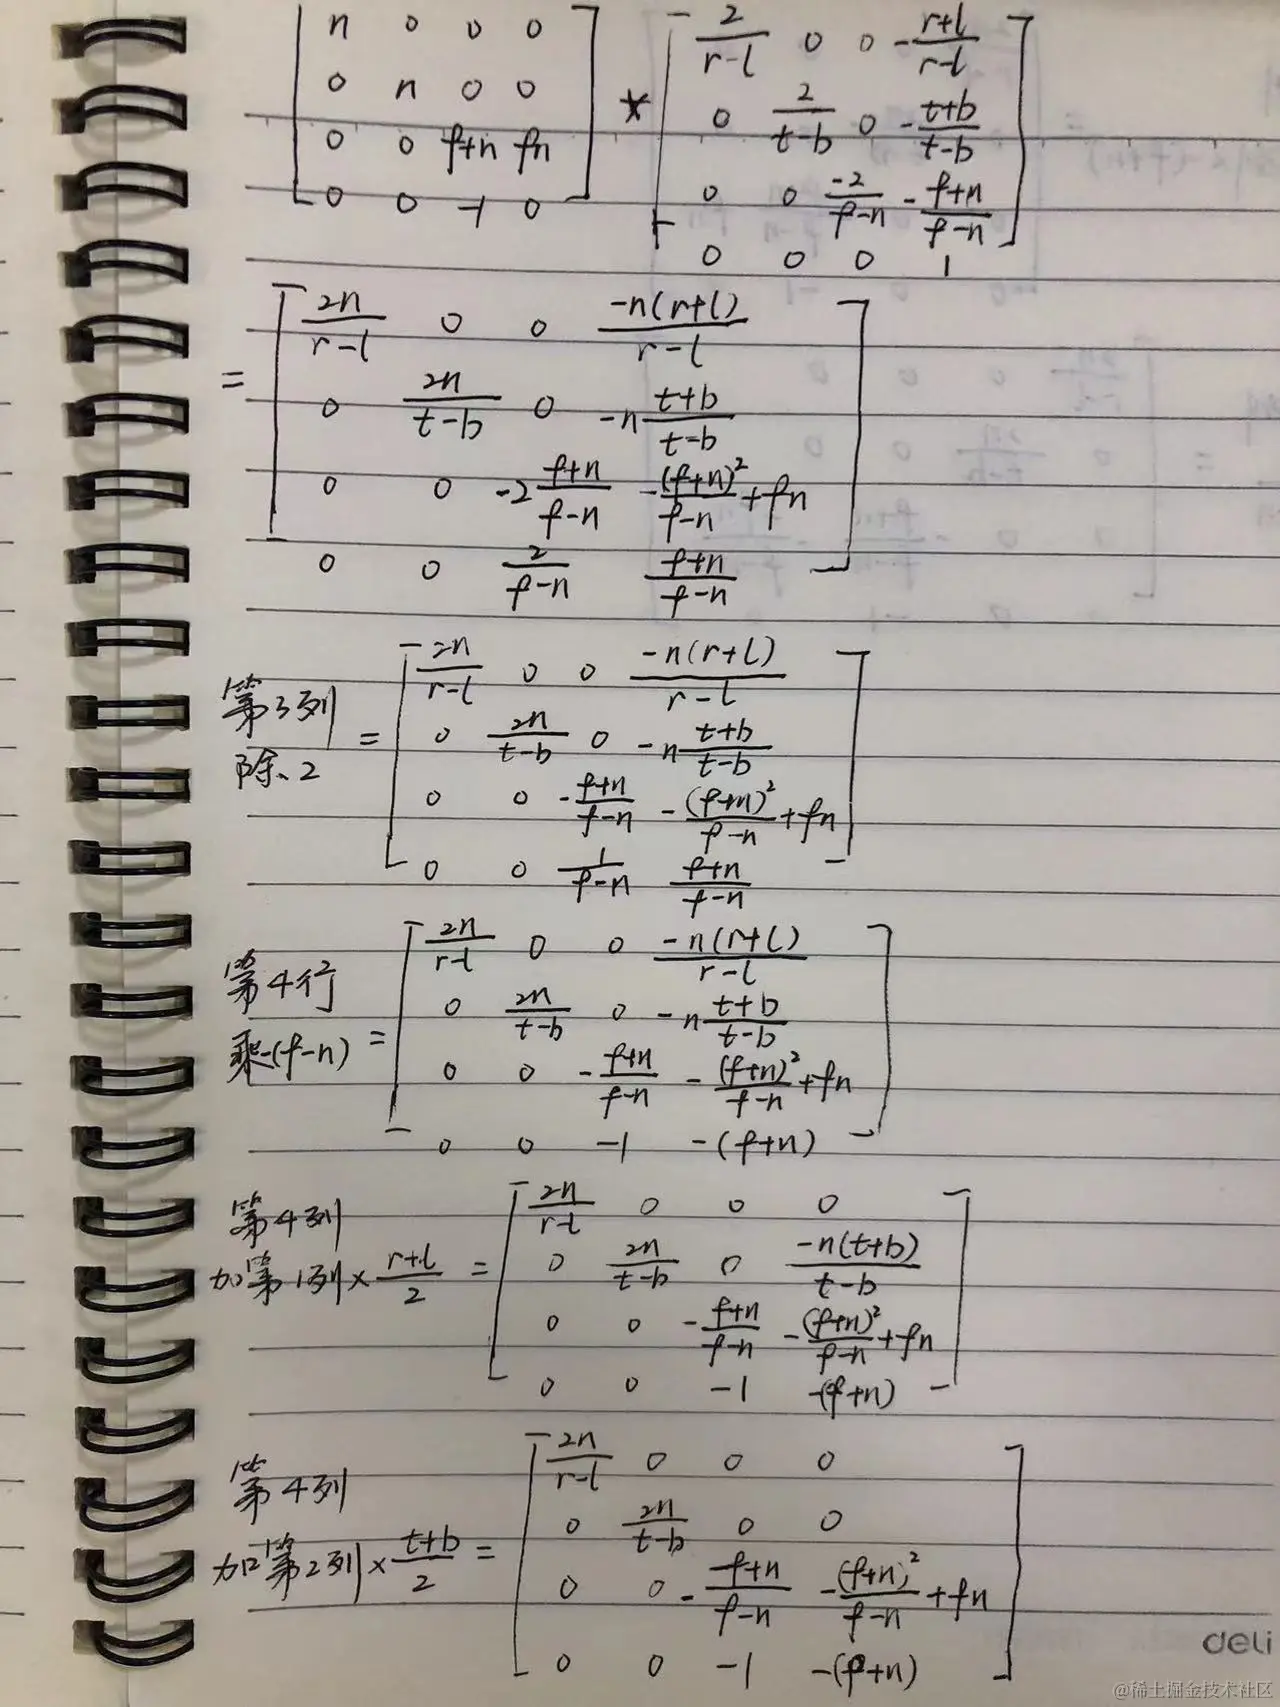 [n 0 0 0; 0 n 0 0; 0 0 f+n fn; 0 0 -1 0] * [2/(r-l) 0 0 -(r+l)/(r-l); 0 2/(t-b) 0 -(t+b)/(t-b); 0 0 -2/(f-n) -(f+n)/(f-n); 0 0 0 1]
= [2n/(r-l) 0 0 -n(r+l)/(r-l); 0 2n/(t-b) 0 -n(t+b)/(t-b); 0 0 -2(f+n)/(f-n) -(f+n)²/(f-n)+fn; 0 0 2/(f-n) (f+n)/(f-n)]
第3列
除2 = [2n/(r-l) 0 0 -n(r+l)/(r-l); 0 2n/(t-b) 0 -n(t+b)/(t-b); 0 0 -(f+n)/(f-n) -(f+n)²/(f-n)+fn; 0 0 1/(f-n) (f+n)/(f-n)]
第4行
乘-(f-n) = [2n/(r-l) 0 0 -n(r+l)/(r-l); 0 2n/(t-b) 0 -n(t+b)/(t-b); 0 0 -(f+n)/(f-n) -(f+n)²/(f-n)+fn; 0 0 -1 -(f+n)]
第4列
加第1列×(r+l)/2 = [2n/(r-l) 0 0 0; 0 2n/(t-b) 0 -n(t+b)/(t-b); 0 0 -(f+n)/(f-n) -(f+n)²/(f-n)+fn; 0 0 -1 -(f+n)]
第4列
加第2列×(t+b)/2 = [2n/(r-l) 0 0 0; 0 2n/(t-b) 0 0; 0 0 -(f+n)/(f-n) -(f+n)²/(f-n)+fn; 0 0 -1 -(f+n)]
deli
@稀土掘金技术社区